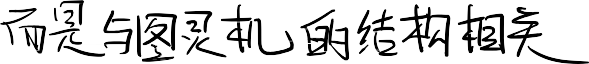 而是与图灵机的结构相关